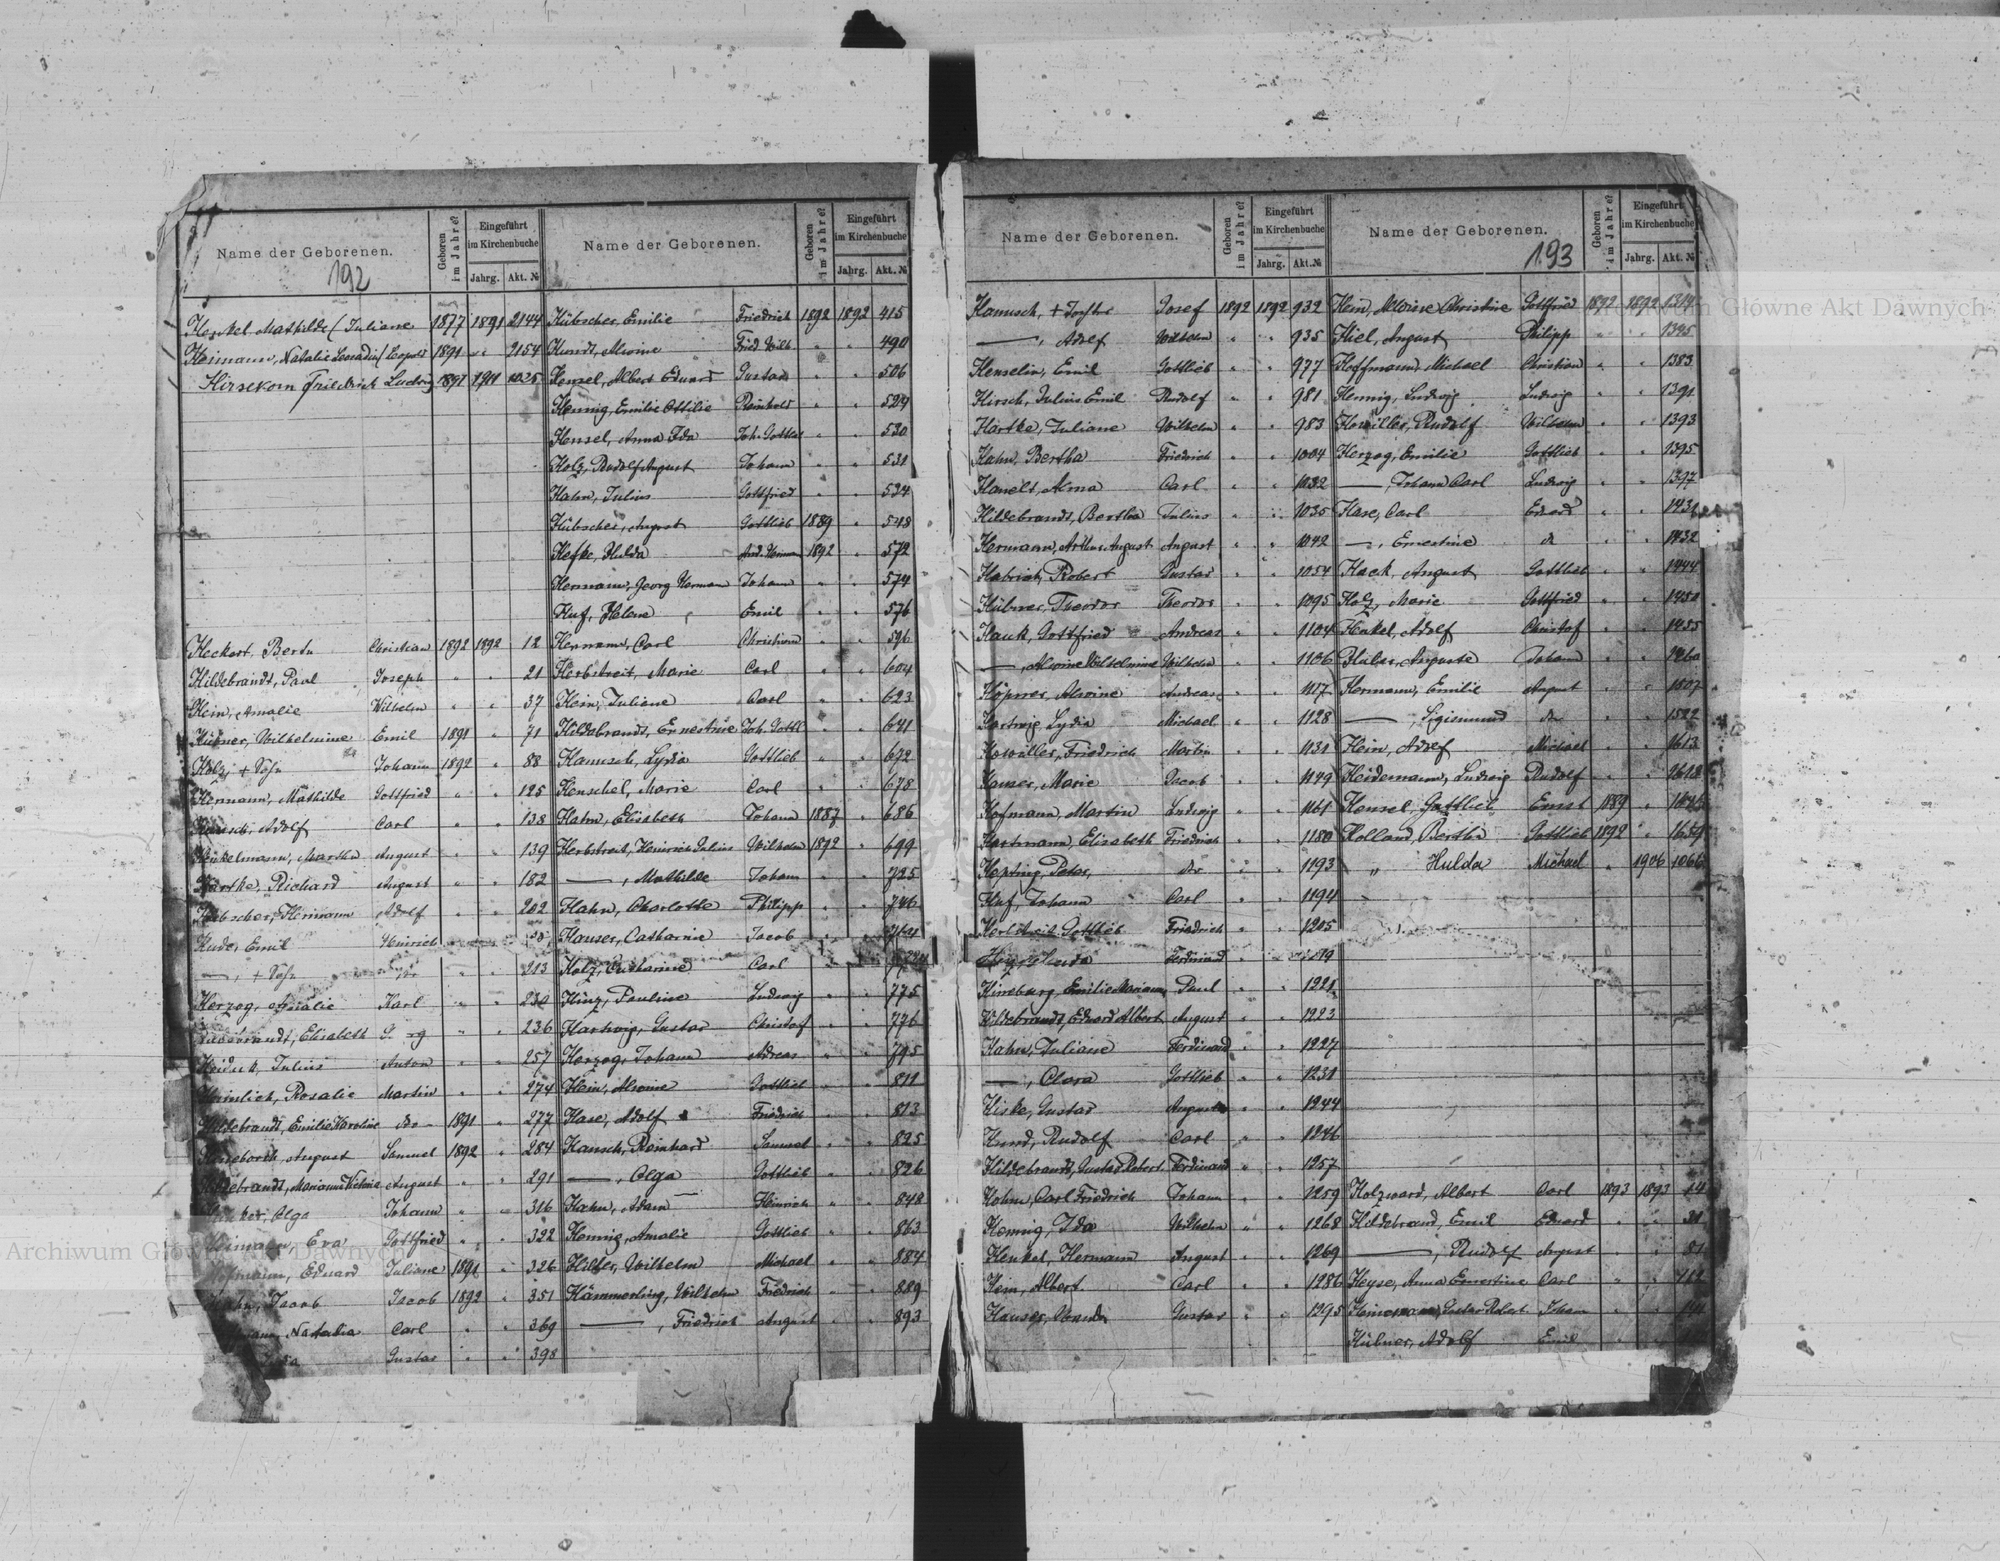 Name der Geborenen.
192
Geboren im Jahre?
Eingeführt im Kirchenbuche
Jahrg. Akt. №
Henkel Mathilde (Juliane 1877 1891 2144
Heimann, Natalie Leocadia (Leopold 1891 " 2154
Hirsekorn Friedrich Ludwig 1891 1911 1025
Heckert, Berta Christian 1892 1892 12
Hildebrandt, Paul Joseph " " 21
Hein, Amalie Wilhelm " " 37
Hübner, Wilhelmine Emil 1891 " 71
Holz, + Sohn Johann 1892 " 88
Hermann, Mathilde Gottfried " " 125
Adolf Carl " " 138
Henkelmann, Martha August " " 139
Hartke, Richard August " " 182
Hübscher, Hermann Adolf " " 202
Hude, Emil Heinrich
—, + Sohn " " 213
Herzog, Amalie Karl " " 230
Hildebrandt, Elisabeth " " 236
Julius Anton " " 257
Heimlich, Rosalie Martin " " 274
Hildebrandt, Emilie Karoline do 1891 " 277
August Samuel 1892 " 284
Hildebrandt, Marianna Victoria August " " 291
Olga Johann " " 316
Heimann, Eva Gottfried " " 322
Hofmann, Eduard Juliane 1891 " 326
Hahn, Jacob Jacob 1892 " 351
Natalia Carl " " 369
Gustav " " 398
Name der Geborenen.
Geboren im Jahre?
Eingeführt im Kirchenbuche
Jahrg. Akt. №
Hübscher, Emilie Friedrich 1892 1892 415
Hundt, Alwine Fried. Wilh " " 490
Hensel, Albert Eduard Gustav " " 506
Hennig, Emilie Ottilie Reinhold " " 529
Hensel, Anna Ida Joh. Gottlieb " " 530
Holz, Rudolf August Johann " " 531
Hahn, Julius Gottfried " " 534
Hübscher, August Gottlieb 1889 " 548
Hefke, Hulda And. Herman 1892 " 572
Hermann, Georg Herman Johann " " 574
Huf, Helene Emil " " 576
Hermann, Carl Christian " " 596
Herbstreit, Marie Carl " " 604
Hein, Juliane Carl " " 623
Hildebrandt, Ernestine Joh. Gottl " " 641
Hanusch, Lydia Gottlieb " " 672
Henschel, Marie Carl " " 678
Hahn, Elisabeth Johann 1887 " 686
Herbstreit, Heinrich Julius Wilhelm 1892 " 699
—, Mathilde Johann " " 725
Hahn, Charlotte Philipp " " 746
Hauser, Catharine Jacob " " 764
Holz, Catharine Carl " "
Hinz, Pauline Ludwig " " 775
Hartwig, Gustav Christof " " 776
Herzog, Johann Adreas " " 795
Hein, Alwine Gottlieb " " 811
Hase, Adolf Friedrich " " 813
Hansch, Reinhard Samuel " " 825
—, Olga Gottlieb " " 826
Hahn, Adam Heinrich " " 848
Hennig, Amalie Gottlieb " " 863
Hiller, Wilhelm Michael " " 884
Hämmerling, Wilhelm Friedrich " " 889
—, Friedrich August " " 893
Name der Geborenen.
Geboren im Jahre?
Eingeführt im Kirchenbuche
Jahrg. Akt. №
Hanusch, + Tochter Josef 1892 1892 932
—, Adolf Wilhelm " " 935
Henselin, Emil Gottlieb " " 977
Hirsch, Julius Emil Rudolf " " 981
Hartke, Juliane Wilhelm " " 983
Hahn, Bertha Friedrich " " 1004
Hanelt, Alma Carl " " 1032
Hildebrandt, Bertha Julius " " 1035
Hermann, Arthur August August " " 1042
Habricht, Robert Gustav " " 1054
Hübner, Theodor Theodor " " 1095
Hauk, Gottfried Andreas " " 1104
—, Alwine Wilhelmine Wilhelm " " 1106
Höpner, Alwine Andreas " " 1117
Hartwig Lydia Michael " " 1128
Howiller, Friedrich Martin " " 1131
Hauser, Marie Jacob " " 1149
Hofmann, Martin Ludwig " " 1161
Hartmann, Elisabeth Friedrich " " 1180
Hopting, Peter, do " " 1193
Huf, Johann Carl " " 1194
Herbstreit, Gottlieb Friedrich " " 1205
Ferdinand " "
Hinzburg, Emilie Marianna Paul " " 1221
Hildebrandt, Eduard Albert August " " 1223
Hahn, Juliane Ferdinand " " 1227
—, Clara Gottlieb " " 1231
Hiske, Gustav August " " 1244
Hund, Rudolf Carl " " 1246
Hildebrandt, Gustav Robert Ferdinand " " 1257
Hohm, Carl Friedrich Johann " " 1259
Hennig, Ida Wilhelm " " 1268
Henkel, Hermann August " " 1269
Hein, Albert Carl " " 1286
Hauser, Wanda Gustav " " 1295
Name der Geborenen.
193
Geboren im Jahre?
Eingeführt im Kirchenbuche
Jahrg. Akt. №
Hein, Alwine Christine Gottfried 1892 1892 1314
Hiel, August Philipp " " 1325
Hoffmann, Michael Christian " " 1383
Hennig, Ludwig Ludwig " " 1391
Howiller, Rudolf Wilhelm " " 1393
Herzog, Emilie Gottlieb " " 1395
—, Johann Carl Ludwig " " 1397
Hase, Carl Eduard " " 1431
—, Ernestine do " " 1432
Hack, August Gottlieb " " 1444
Holz, Marie Gottfried " " 1452
Henkel, Adolf Christof " " 1455
Huber, Auguste Johann " " 1460
Hermann, Emilie August " " 1507
—, Sigismund do " " 1522
Hein, Adolf Michael " " 1613
Heidemann, Ludwig Rudolf " " 1618
Hensel, Gottlieb Ernst 1889 "
Holland, Bertha Gottlieb 1892 " 1659
" Hulda Michael " 1906 1066
Holzward, Albert Carl 1893 1893 14
Hildebrand, Emil Eduard " " 31
—, Rudolf August " " 81
Heyse, Anna Ernestine Carl " " 112
Heinemann, Gustav Robert Johann " "
Hübner, Adolf Emil " "
Archiwum Główne Akt Dawnych
Archiwum Główne Akt Dawnych